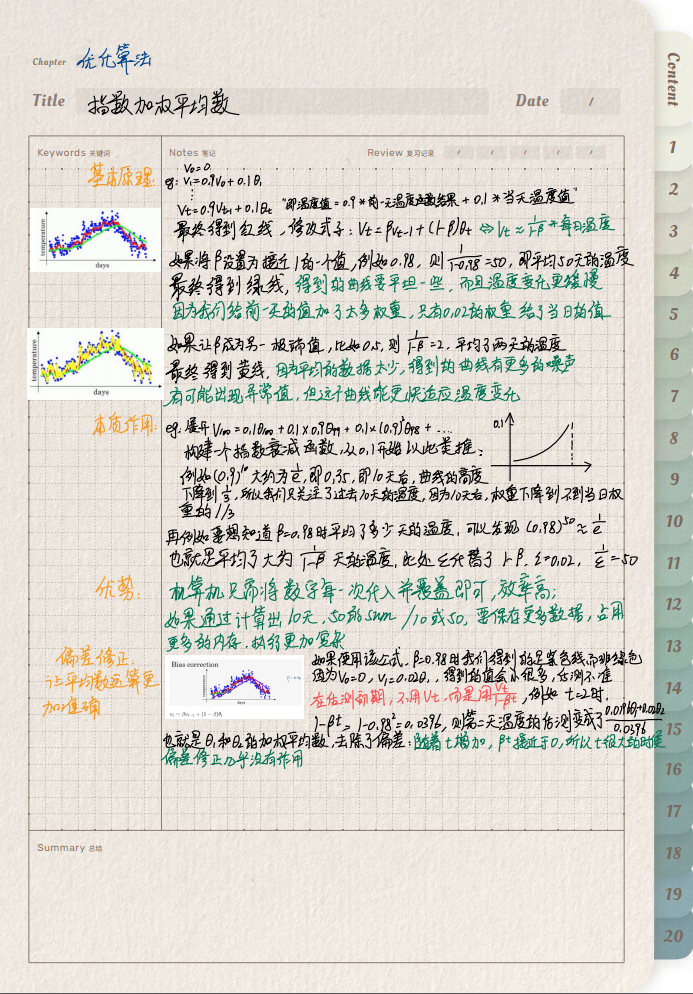 Chapter 优化算法
Title 指数加权平均数 Date /
Content
Keywords 关键词
Notes 笔记
Review 复习记录 / / / / /
基本原理:
eg: V₀=0
V₁=0.9V₀+0.1θ₁
⋮
Vt=0.9Vt-1+0.1θt "即温度值=0.9*前一天温度函数结果+0.1*当天温度值"
最终得到红线，修改式子: Vt=βVt-1+(1-β)θt ⇔ Vt≈1/(1-β)*每日温度
temperature
days
如果将β设置为接近1的一个值，例如0.98，则 1/(1-0.98)=50，即平均50天的温度
最终得到绿线，得到的曲线要平坦一些，而且温度变化更缓慢
因为我们给前一天的值加了太多权重，只有0.02的权重给了当日的值
temperature
days
如果让β成为另一极端值，比如0.5，则 1/(1-β)=2，平均了两天的温度
最终得到黄线，因为平均的数据太少，得到的曲线有更多的噪声
有可能出现异常值，但这个曲线能更快适应温度变化
本质作用:
eg: 展开V₁₀₀=0.1θ₁₀₀+0.1×0.9θ₉₉+0.1×(0.9)²θ₉₈+...
0.1
构建一个指数衰减函数，从0.1开始以此类推;
例如(0.9)¹⁰大约为1/e，即0.35，即10天后，曲线的高度
下降到1/3，所以我们只关注了过去10天的温度，因为10天后，权重下降到不到当日权
重的1/3
再例如要想知道β=0.98时平均了多少天的温度，可以发现 (0.98)⁵⁰≈1/e
也就是平均了大约 1/(1-β) 天的温度，此处ε代替了1-β，ε=0.02，1/ε=50
优势:
计算机只需将数字每一次代入并覆盖即可，效率高;
如果通过计算出10天，50的sum/10或50，要保存更多数据，占用
更多的内存，执行更加复杂
偏差修正
让平均数运算更
加准确
Bias correction
temperature
days
vₜ=βvₜ₋₁+(1-β)θₜ
如果使用该公式，β=0.98时我们得到的是紫色线而非绿色
因为V₀=0，V₁=0.02θ₁，得到的值会小很多，估测不准
在估测初期，不用Vt，而是用 Vt/(1-βᵗ)，例如 t=2时，
1-βᵗ=1-0.98²=0.0396，则第二天温度的估测变成了 (0.0196θ₁+0.02θ₂)/0.0396
也就是θ₁和θ₂的加权平均数，去除了偏差;随着t增加，βᵗ接近于0，所以t很大的时候
偏差修正几乎没有作用
Summary 总结
1
2
3
4
5
6
7
8
9
10
11
12
13
14
15
16
17
18
19
20